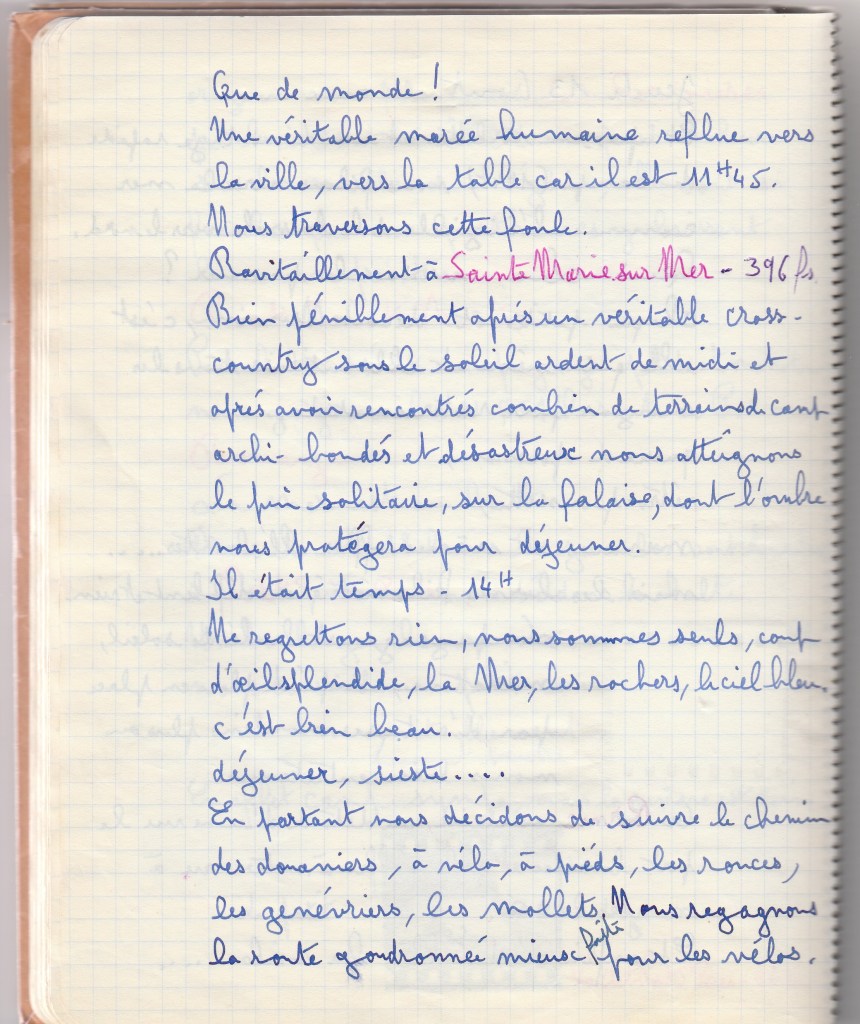 Que de monde !
Une véritable marée humaine reflue vers
la ville, vers la table car il est 11H45.
Nous traversons cette foule.
Ravitaillement à Sainte Marie sur Mer - 396 fs
Bien péniblement aprés un véritable cross-
country sous le soleil ardent de midi et
aprés avoir rencontrés combien de terrains de camp
archi-bondés et désastreux nous atteignons
le pin solitaire, sur la falaise, dont l'ombre
nous protégera pour déjeuner.
Il était temps - 14H
Ne regrettons rien, nous sommes seuls, coup
d'œil splendide, la Mer, les rochers, le ciel bleu.
c'est bien beau.
déjeuner, sieste....
En partant nous décidons de suivre le chemin
des douaniers, à vélo, à piéds, les ronces,
les genévriers, les mollets. Nous regagnons
la route goudronneé mieux faite pour les vélos.